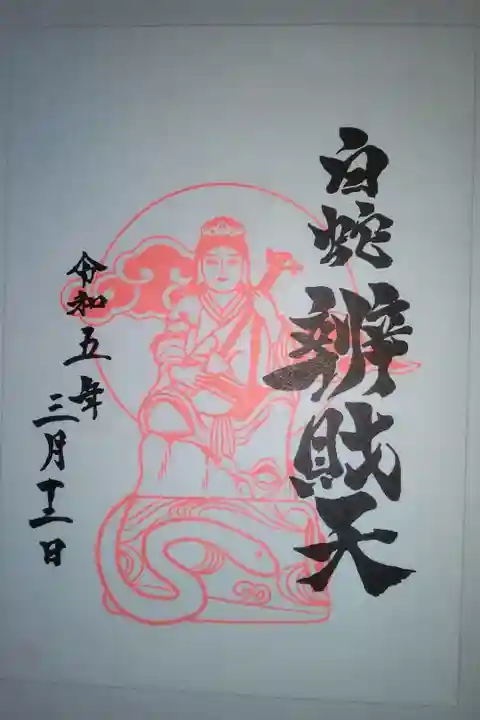 白蛇辨財天
令和五年
三月十二日